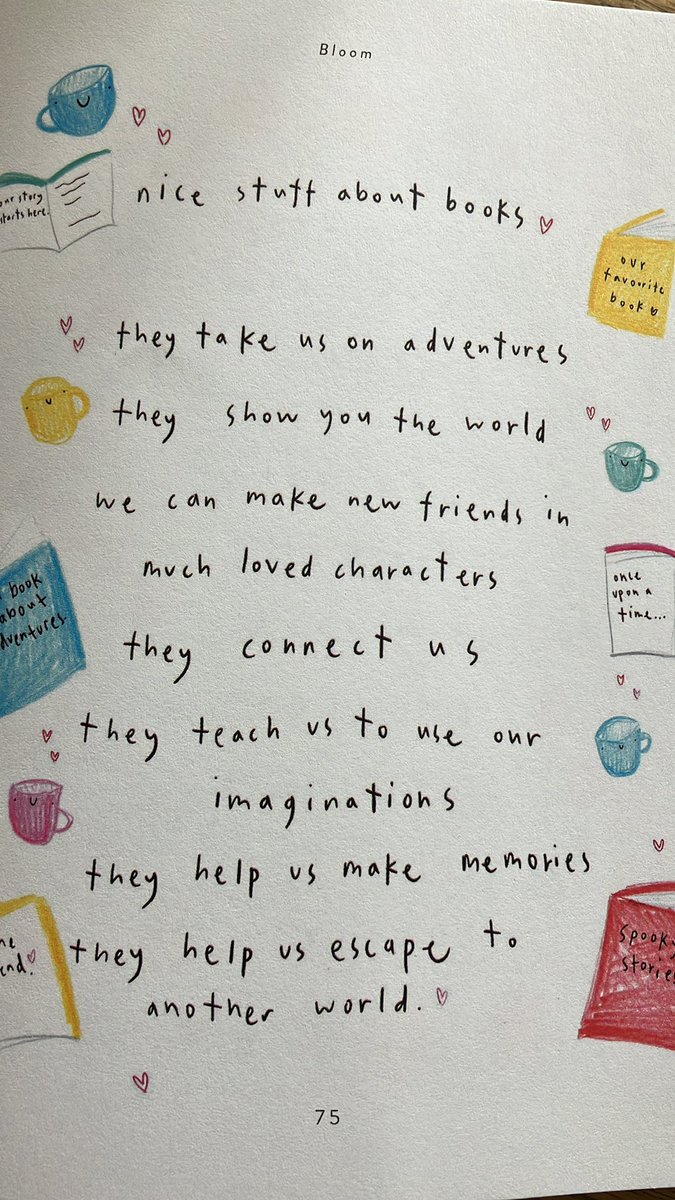 Bloom
our story
starts here.
nice stuff about books
our
favourite
book
they take us on adventures
they show you the world
we can make new friends in
much loved characters
book
about
adventures
once
upon a
time...
they connect us
they teach us to use our
imaginations
they help us make memories
they help us escape to
another world.
end!
spooky
stories
75